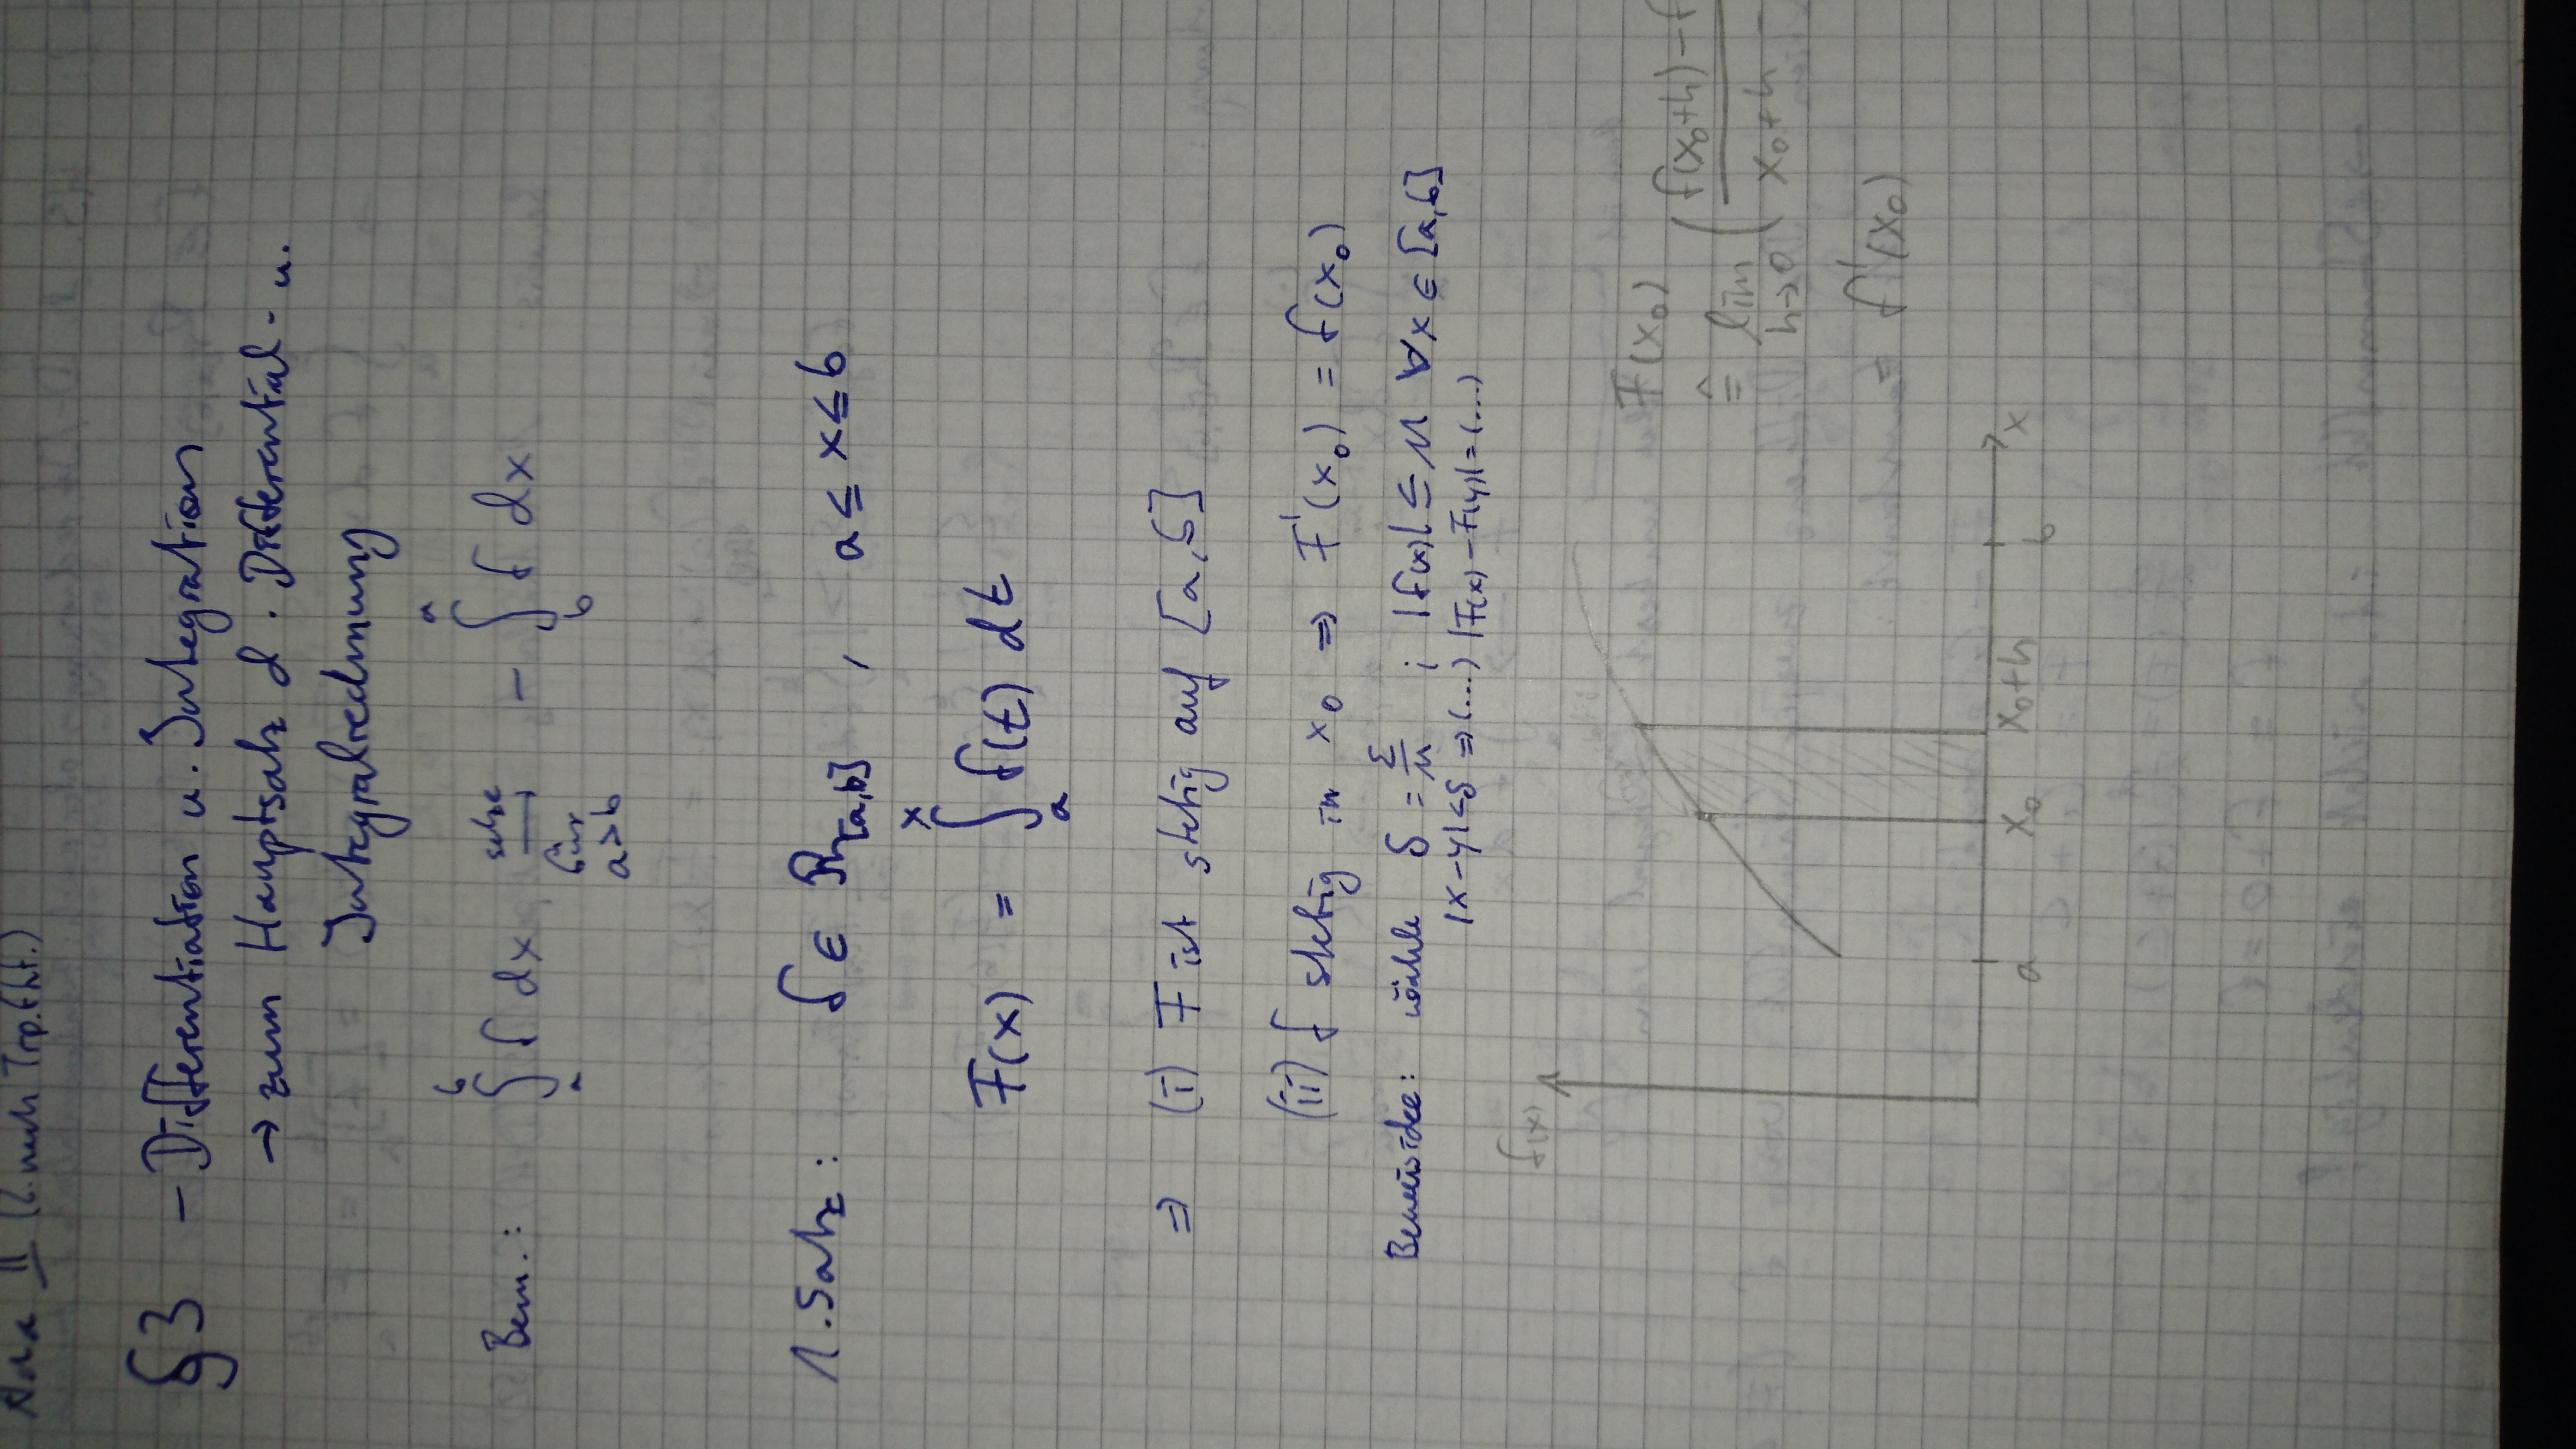 Ana II (2. nach Trp.fhf.)
§3 – Differentiation u. Integration
→ zum Hauptsatz d. Differential- u.
Integralrechnung
Bem.: ∫_a^b f dx setze → für a>b - ∫_b^a f dx
1. Satz: f ∈ R_[a,b] , a ≤ x ≤ b
F(x) = ∫_a^x f(t) dt
⇒ (i) F ist stetig auf [a,b]
(ii) f stetig in x₀ ⇒ F'(x₀) = f(x₀)
Beweisidee: wähle δ = ε/M ; |f(x)| ≤ M ∀x ∈ [a,b]
|x-y|<δ ⇒ (...) |F(x) - F(y)| = (...)
f(x)
F(x₀)
≙ lim h→0 ( f(x₀+h) - f / x₀+h -
= f'(x₀)
a x₀ x₀+h b x